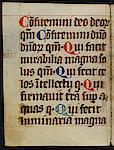 Confitemini deo deor
qm̄ Confitemini dn̄o
dn̄orꝝ qm̄ Qui facit
mirabilia magna so
lus qm̄ Qui fecit ce
los intellectu q̄ Qui
firmauit trā sup a
quas q̄ Qui fecit
luminaria magna